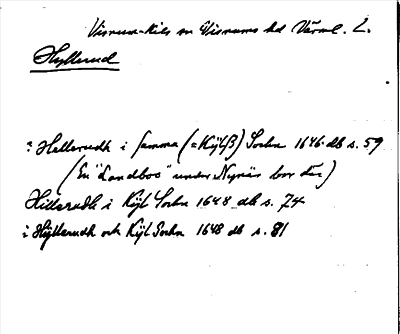 Visnum-Kils sn Visnums hd Värml. L.
Hyllerud
? Hellerudh i samma (=Kÿlß) Sochn 1646 db s. 59
(En "Landboo" under Nynäs bor der)
Hillerudh i Kÿl Sochn 1648 db s. 74
i Hÿllerudh och Kÿl Sochn 1648 db s. 81